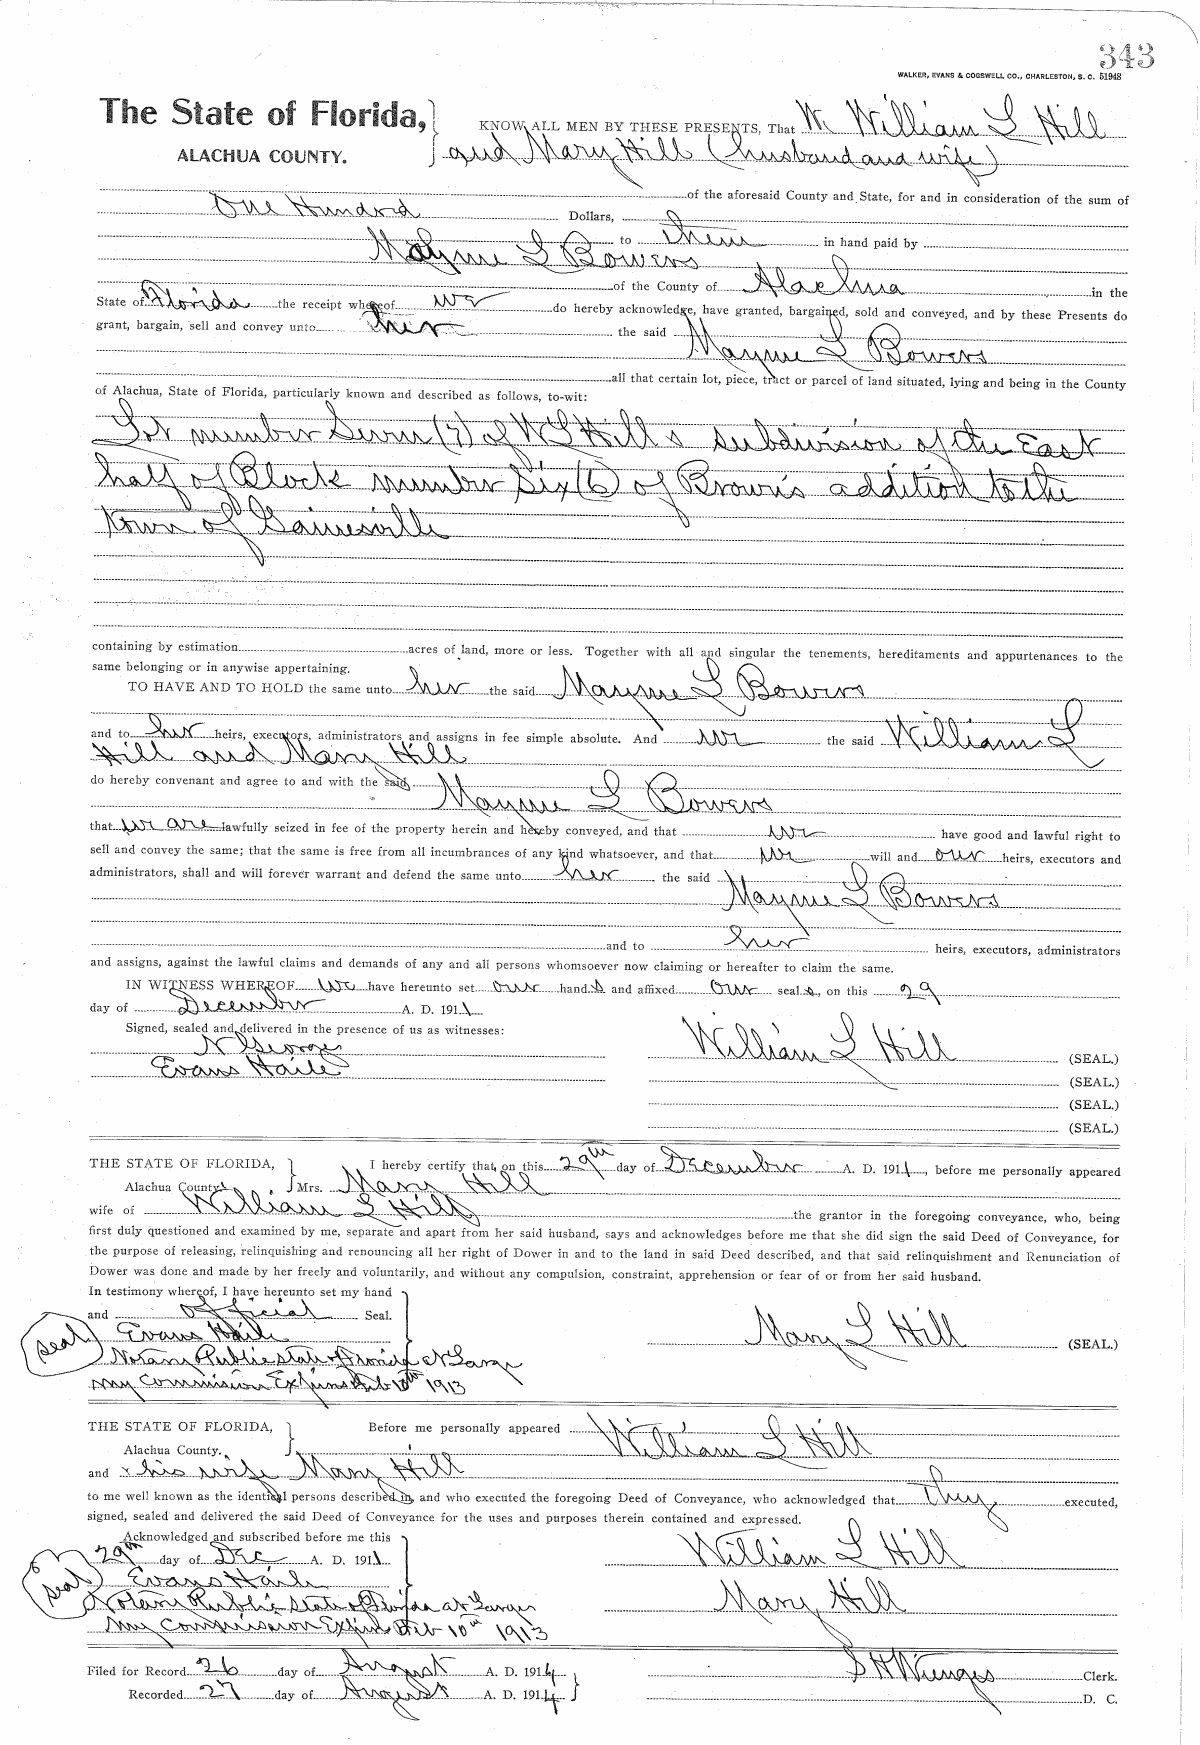 343
WALKER, EVANS & COGSWELL CO., CHARLESTON, S. C. 51948
The State of Florida,
ALACHUA COUNTY.
KNOW ALL MEN BY THESE PRESENTS, That We William L Hill
and Mary Hill (husband and wife)
of the aforesaid County and State, for and in consideration of the sum of
One Hundred Dollars,
to them in hand paid by
Mayme L Bowers
of the County of Alachua in the
State of Florida the receipt whereof we do hereby acknowledge, have granted, bargained, sold and conveyed, and by these Presents do
grant, bargain, sell and convey unto her the said Mayme L Bowers
all that certain lot, piece, tract or parcel of land situated, lying and being in the County
of Alachua, State of Florida, particularly known and described as follows, to-wit:
Lot number Seven (7) of W L Hill s subdivision of the East
half of Block number Six (6) of Brown's addition to the
town of Gainesville
containing by estimation acres of land, more or less. Together with all and singular the tenements, hereditaments and appurtenances to the
same belonging or in anywise appertaining.
TO HAVE AND TO HOLD the same unto her the said Mayme L Bowers
and to her heirs, executors, administrators and assigns in fee simple absolute. And we the said William L
Hill and Mary Hill
do hereby convenant and agree to and with the said Mayme L Bowers
that we are lawfully seized in fee of the property herein and hereby conveyed, and that we have good and lawful right to
sell and convey the same; that the same is free from all incumbrances of any kind whatsoever, and that we will and our heirs, executors and
administrators, shall and will forever warrant and defend the same unto her the said Mayme L Bowers
and to her heirs, executors, administrators
and assigns, against the lawful claims and demands of any and all persons whomsoever now claiming or hereafter to claim the same.
IN WITNESS WHEREOF we have hereunto set our hands and affixed our seals, on this 29
day of December A. D. 1911
Signed, sealed and delivered in the presence of us as witnesses:
Evans Haile
William L Hill (SEAL.)
(SEAL.)
(SEAL.)
(SEAL.)
THE STATE OF FLORIDA,
Alachua County.
I hereby certify that on this 29th day of December A. D. 1911, before me personally appeared
Mrs. Mary Hill
wife of William L Hill the grantor in the foregoing conveyance, who, being
first duly questioned and examined by me, separate and apart from her said husband, says and acknowledges before me that she did sign the said Deed of Conveyance, for
the purpose of releasing, relinquishing and renouncing all her right of Dower in and to the land in said Deed described, and that said relinquishment and Renunciation of
Dower was done and made by her freely and voluntarily, and without any compulsion, constraint, apprehension or fear of or from her said husband.
In testimony whereof, I have hereunto set my hand
and official Seal.
(seal) Evans Haile
Notary Public state of Florida at Large
My Commision Expires Feb 10th 1913
Mary L Hill (SEAL.)
THE STATE OF FLORIDA,
Alachua County.
Before me personally appeared William L Hill
and his wife Mary Hill
to me well known as the identical persons described in, and who executed the foregoing Deed of Conveyance, who acknowledged that they executed,
signed, sealed and delivered the said Deed of Conveyance for the uses and purposes therein contained and expressed.
Acknowledged and subscribed before me this
29th day of Dec A. D. 1911
(seal) Evans Haile
Notary Public State of Florida at Large
My commission Expires Feb 10th 1913
William L Hill
Mary Hill
Filed for Record 26 day of August A. D. 1914
Recorded 27 day of August A. D. 1914
S H Wienges Clerk.
D. C.